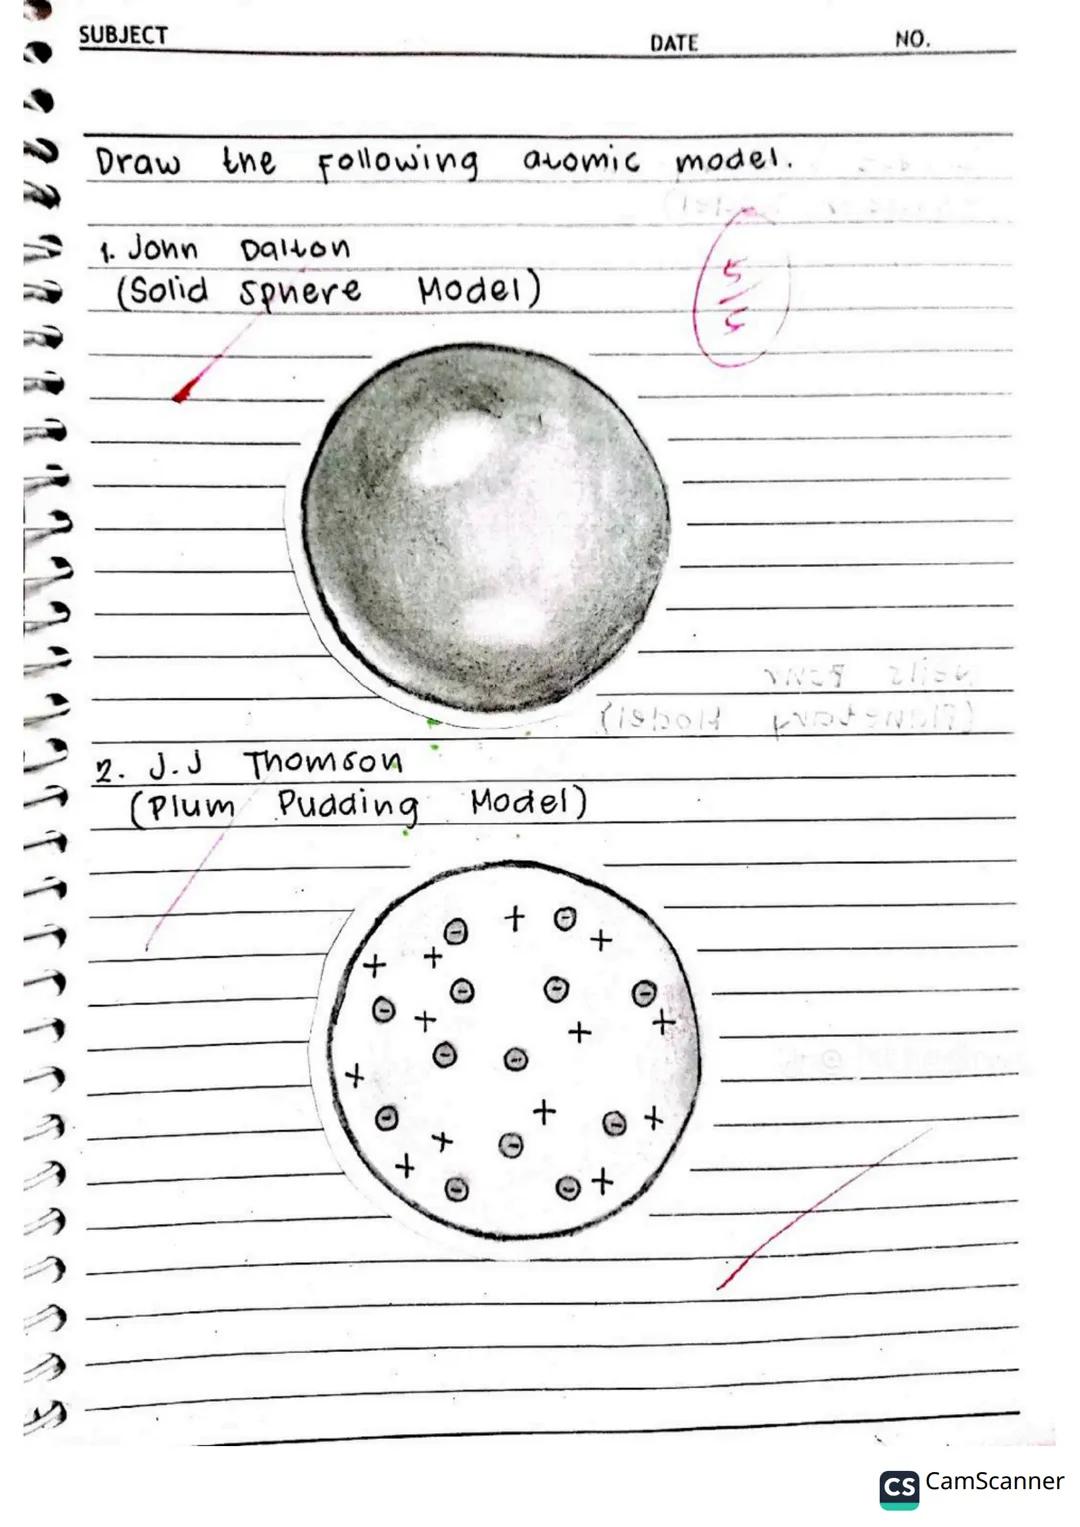 SUBJECT DATE NO.
Draw the following atomic model.
1. John Dalton
(Solid Sphere Model)
5/5
2. J.J Thomson
(Plum Pudding Model)
- + -
+ + +
- - - -
+ + +
- -
+
- + - +
+ -
+ - - +
CS CamScanner